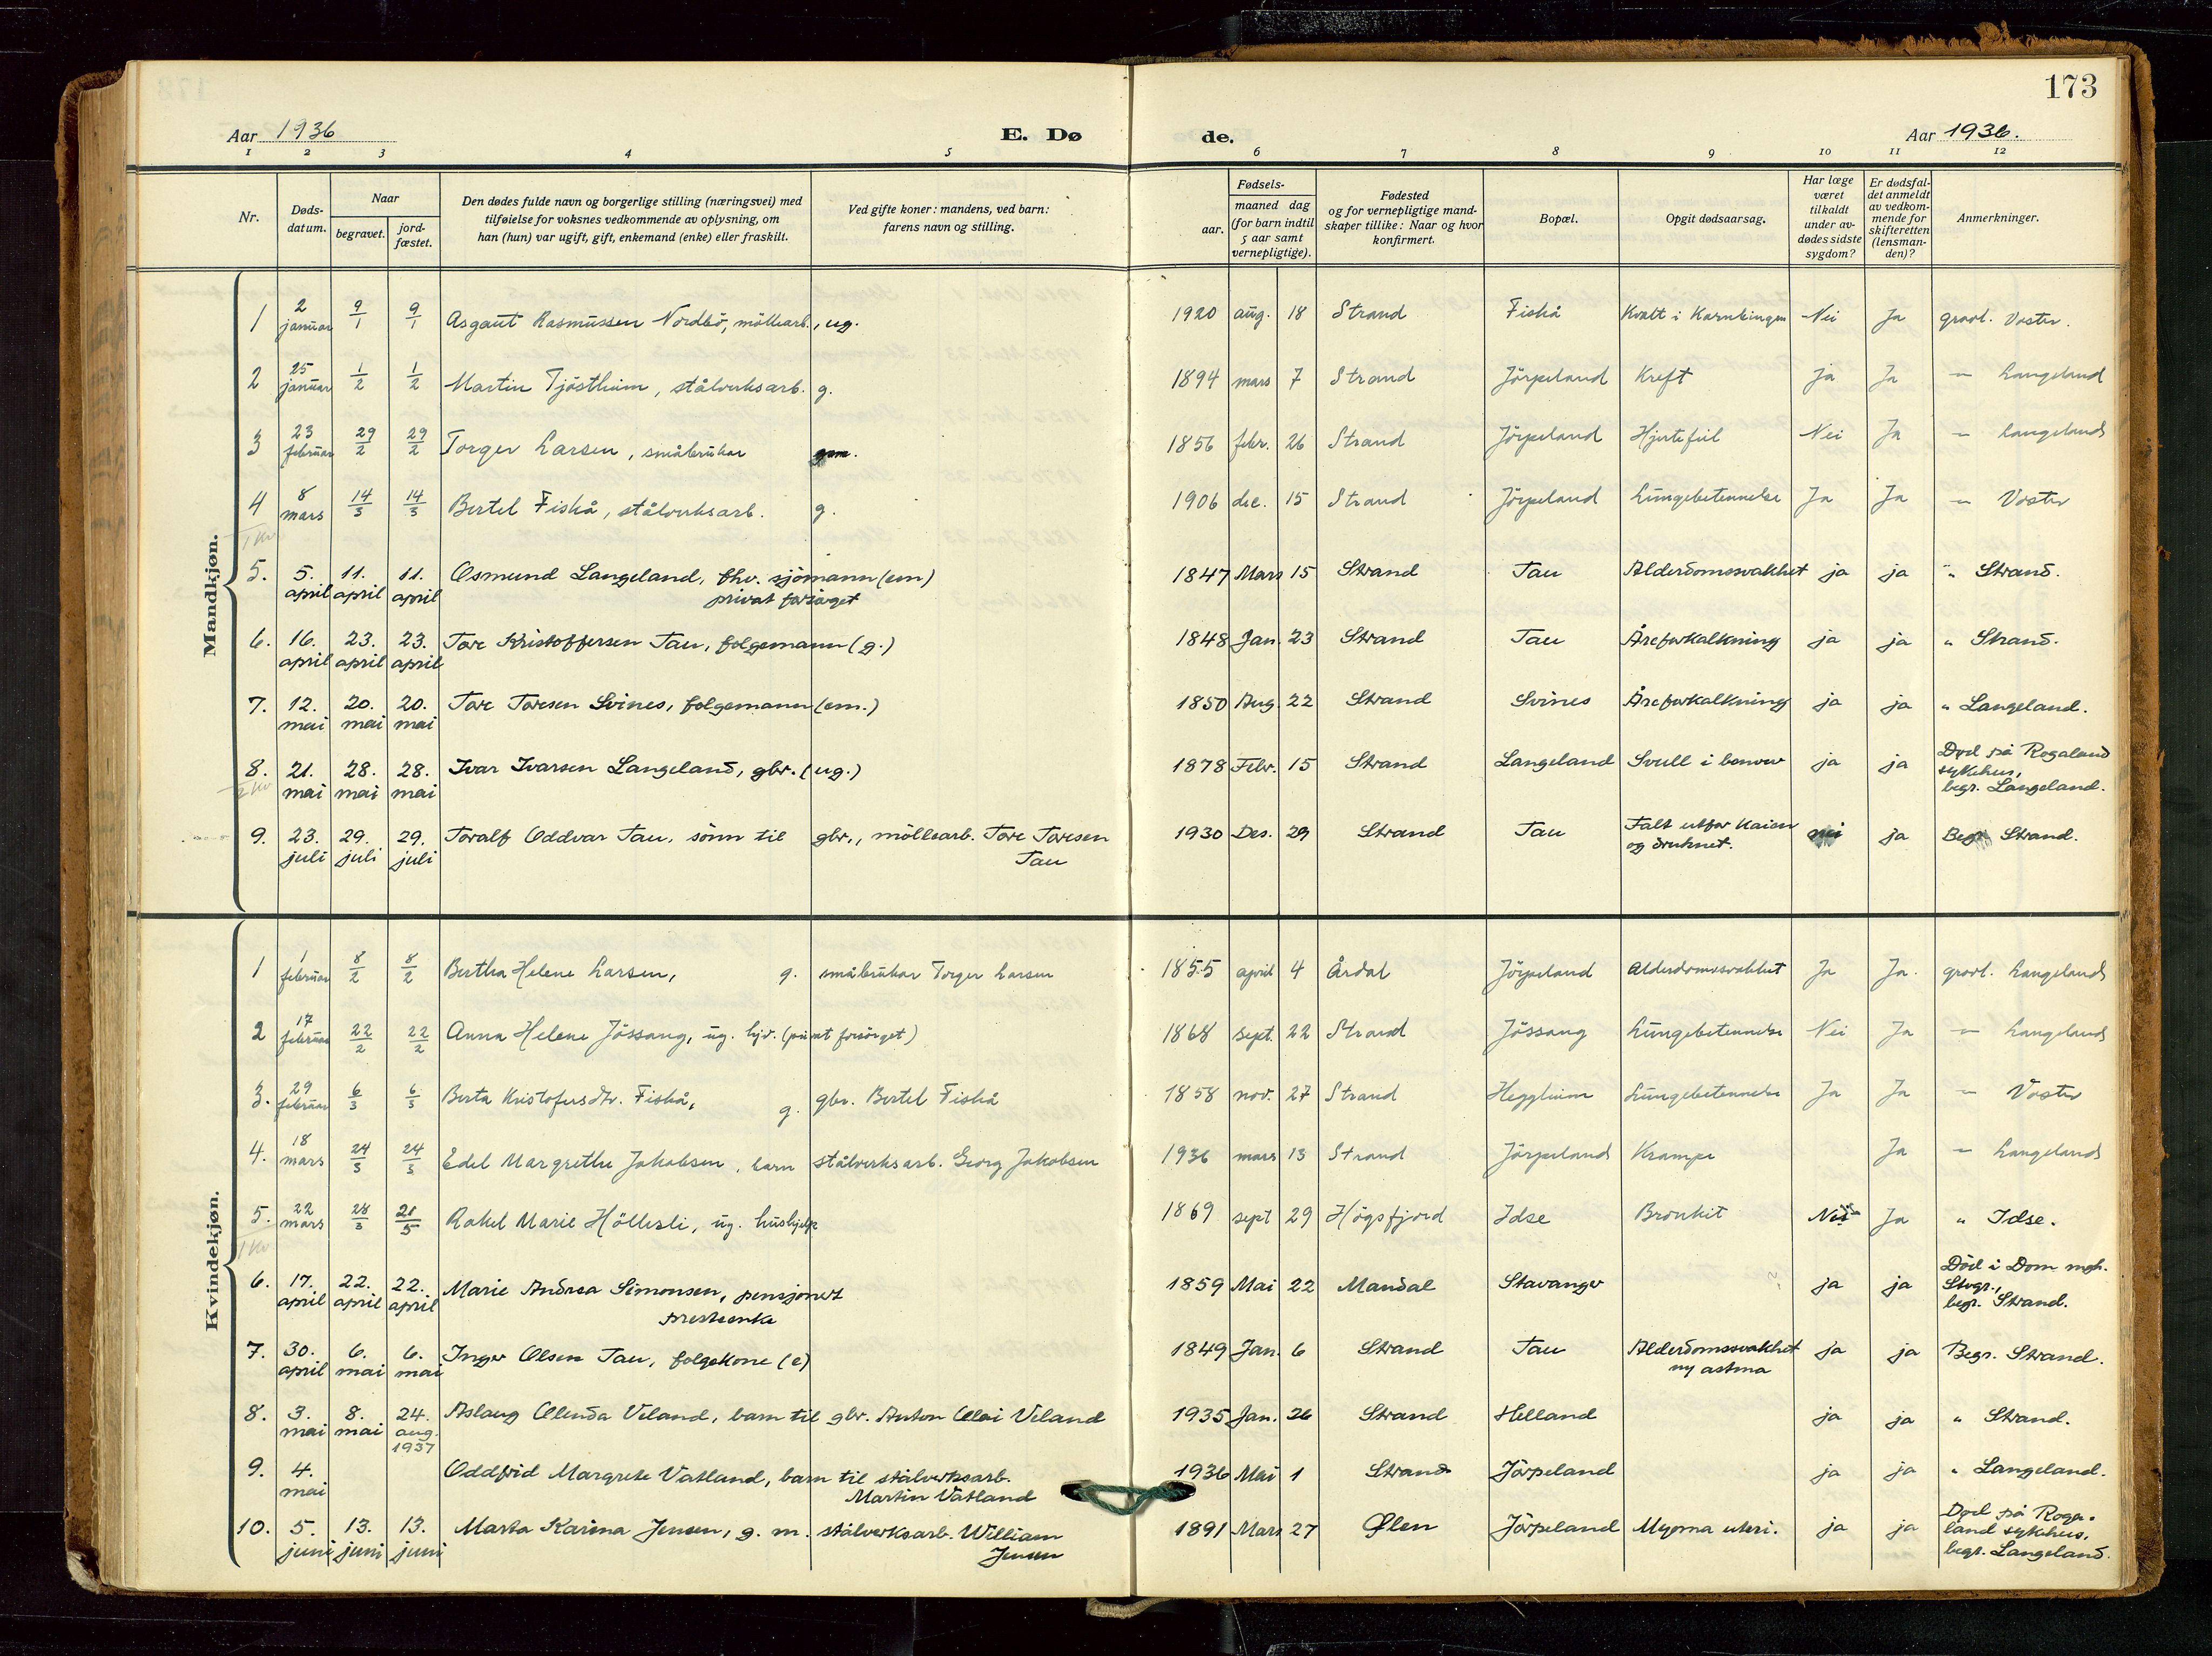 173
Aar 1936 E. Dø de. Aar 1936.
1 2 3 4 5 6 7 8 9 10 11 12
Nr. Døds-datum. Naar begravet. jord-fæstet. Den dødes fulde navn og borgerlige stilling (næringsvei) med tilføielse for voksnes vedkommende av oplysning, om han (hun) var ugift, gift, enkemand (enke) eller fraskilt. Ved gifte koner: mandens, ved barn: farens navn og stilling. Fødsels- aar. maaned dag (for barn indtil 5 aar samt vernepligtige). Fødested og for vernepligtige mand-skaper tillike: Naar og hvor konfirmert. Bopæl. Opgit dødsaarsag. Har læge været tilkaldt under av-dødes sidste sygdom? Er dødsfal-det anmeldt av vedkom-mende for skifteretten (lensman-den)? Anmerkninger.
Mandkjøn.
1 2 januar 9/1 9/1 Asgaut Rasmussen Nordbö, möllearb., ug. 1920 aug. 18 Strand Fiskå Kvalt i Kornbingen Nei Ja gravl. Voster.
2 25 januar 1/2 1/2 Martin Tjöstheim, stålverksarb. g. 1894 mars 7 Strand Jörpeland Kreft Ja Ja — Langeland
3 23 februar 29/2 29/2 Torger Larsen, småbruker 1856 febr. 26 Strand Jörpeland Hjertefeil Nei Ja — Langeland
4 8 mars 14/3 14/3 Bertel Fiskå, stålverksarb. g. 1906 dec. 15 Strand Jörpeland Lungebetennelse Ja Ja — Voster
1 kv
5. 5. april 11. april 11. april Osmund Langeland, fhv. sjömann (em) privat forsörget 1847 Mars 15 Strand Tau Alderdomssvakhet ja ja " Strand.
6. 16. april 23. april 23. april Tore Kristoffersen Tau, folgemann (g.) 1848 Jan. 23 Strand Tau Åreforkalkning ja ja " Strand.
7. 12. mai 20. mai 20. mai Tore Toresen Svines, folgemann (em.) 1850 Aug. 22 Strand Svines Åreforkalkning ja ja " Langeland.
8. 21. mai 28. mai 28. mai Ivar Ivarsen Langeland, gbr. (ug.) 1878 Febr. 15 Strand Langeland Svull i ja ja Död på Rogaland sykehus, begr. Langeland.
2 kv
9. 23. juli 29. juli 29. juli Toralf Oddvar Tau, sönn til gbr., möllearb. Tore Toresen Tau 1930 Des. 29 Strand Tau Falt utfor Kaien og druknet. nei ja Begr. Strand.
Kvindekjøn.
1 1 februar 8/2 8/2 Bertha Helene Larsen, g. småbruker Torger Larsen 1855 april 4 Årdal Jörpeland Alderdomssvakhet Ja Ja. gravl. Langeland
2 17 februar 22/2 22/2 Anna Helene Jössang, ug. hjv. (privat forsörget) 1868 sept. 22 Strand Jössang Lungebetennelse Nei Ja — Langeland
3. 29 februar 6/3 6/3 Berta Kristofersdtr. Fiskå, g. gbr. Bertel Fiskå 1858 nov. 27 Strand Heggheim Lungebetennelse Ja Ja — Voster
4. 18 mars 24/3 24/3 Edel Margrethe Jakobsen, barn stålverksarb. Georg Jakobsen 1936 mars 13 Strand Jörpeland Krampe Ja — Langeland
5. 22 mars 28/3 21/5 Rakel Marie Höllesli, ug. hushjelp 1869 sept 29 Högsfjord Idse Bronkit Nei Ja " Idse.
1 kv
6. 17. april 22. april 22. april Marie Andrea Simonsen, pensjonert presteenke 1859 Mai 22 Mandal Stavanger ja ja Död i Dom mgh. Stvgr., begr. Strand.
7. 30. april 6. mai 6. mai Inger Olsen Tau, folgekone (e) 1849 Jan. 6 Strand Tau Alderdomssvakhet ny astma ja ja Begr. Strand.
8. 3. mai 8. mai 24. aug. 1937 Aslaug Olenda Veland, barn til gbr. Anton Olai Veland 1935 Jan. 26 Strand Helland ja ja " Strand.
9. 4. mai Oddfrid Margrete Vatland, barn til stålverksarb. Martin Vatland 1936 Mai 1 Strand Jörpeland ja ja " Langeland.
10. 5. juni 13. juni 13. juni Marta Karina Jensen, g. m. stålverksarb. William Jensen 1891 Mars 27 Ølen Jörpeland Myoma uteri. ja ja Död på Roga-land sykehus, begr. Langeland.